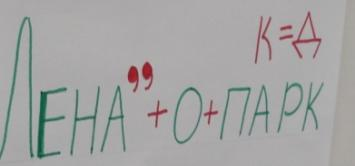 К=Д
ЛЕНА”+О+ПАРК